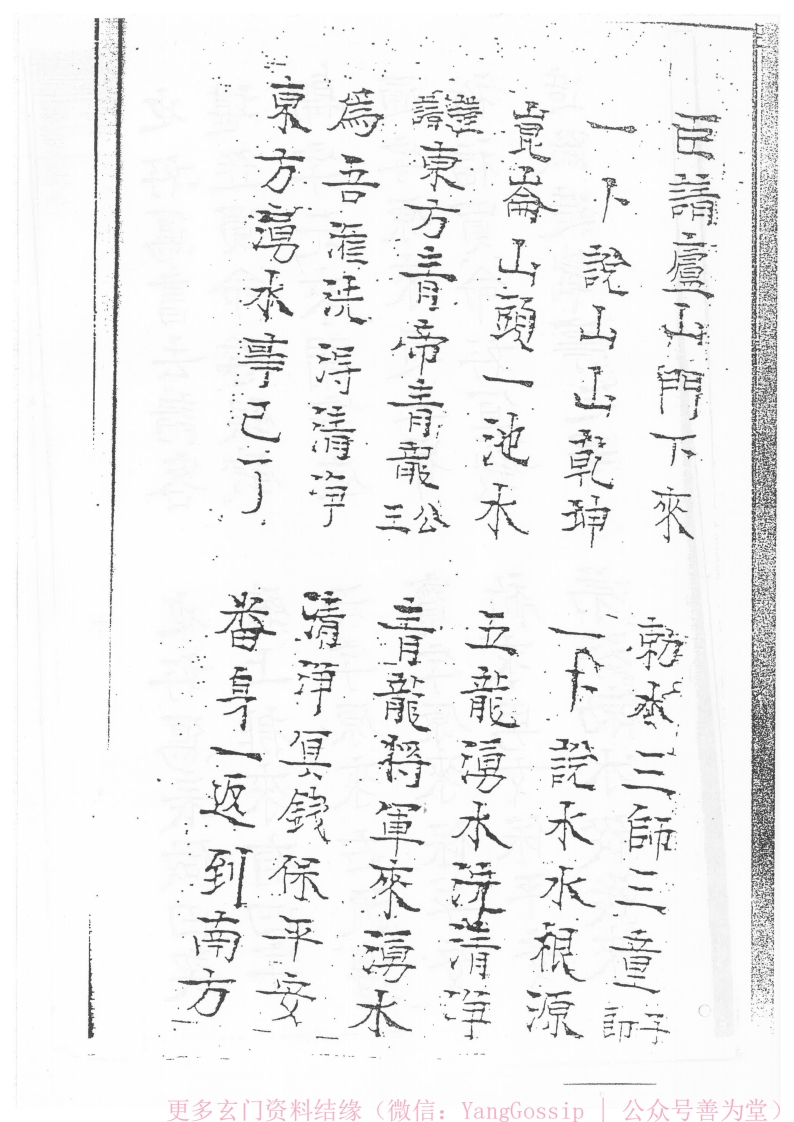 臣請廬山門下來 勅水三師三童子
一卜說山山乾坤 一卜說水水根源
崑崙山頭一池水 五龍湧水洗清净
請東方青帝青龍公三 青龍將軍來湧水
爲吾洗淂清净 清净冥錢保平安
東方湧水事已了 畨身一返到南方
更多玄门资料结缘（微信：YangGossip | 公众号善为堂）